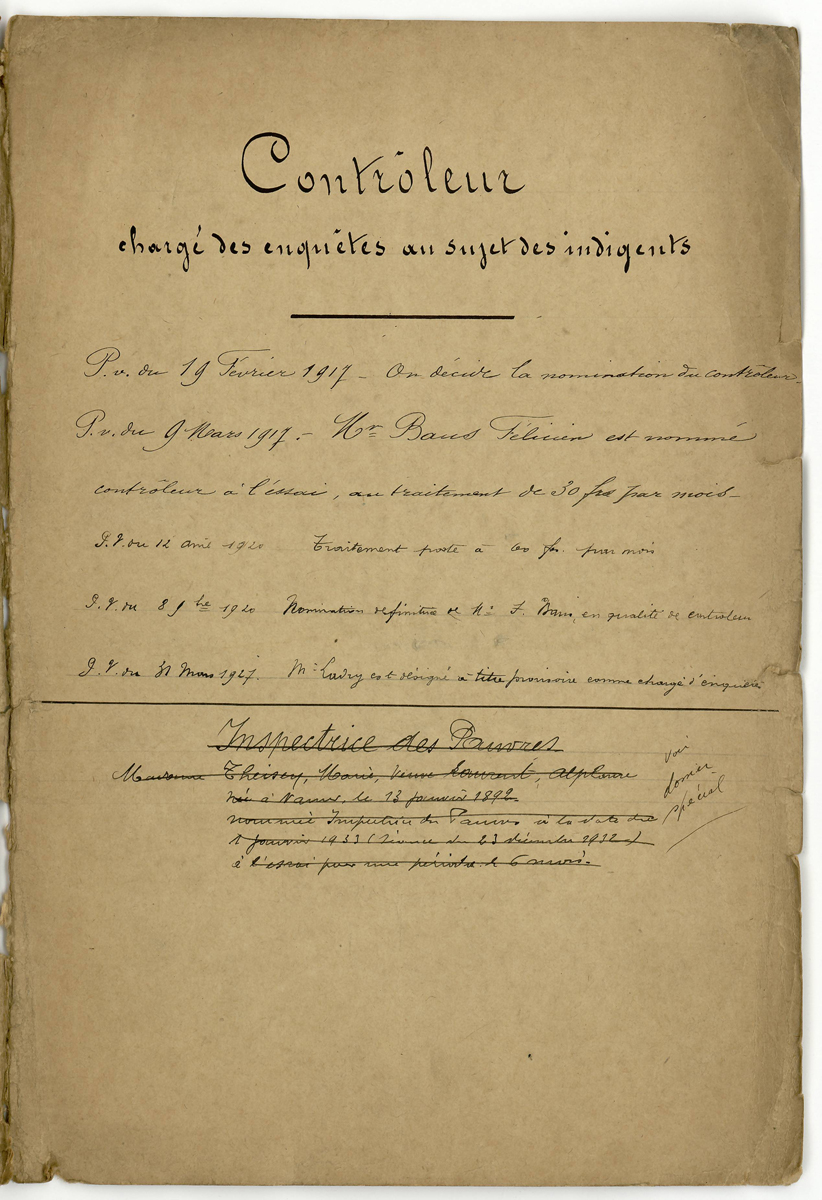 Contrôleur
chargé des enquêtes au sujet des indigents
P.v. du 19 Février 1917 – On décide la nomination du contrôleur.
P.v. du 9 Mars 1917. – Mr Baus Félicien est nommé
contrôleur à l'éssai, au traitement de 30 frs par mois –
P.V. du 12 avril 1920 Traitement porté à 60 frs. par mois
P.V. du 8 9bre 1920 Nomination définitive de Mr F. Baus, en qualité de contrôleur
P.V. du 31 Mars 1927. Mr Ladry est désigné à titre provisoire comme chargé d'enquêtes
Inspectrice des Pauvres
Madame Theisen, Marie, Veuve Laurent, Alphonse
née à Namur, le 13 janvier 1892
nommée Inspectrice des Pauvres à la date du
1 janvier 1933 (Séance du 23 décembre 1932)
à l'essai pour une période de 6 mois.
voir
dossier
spécial